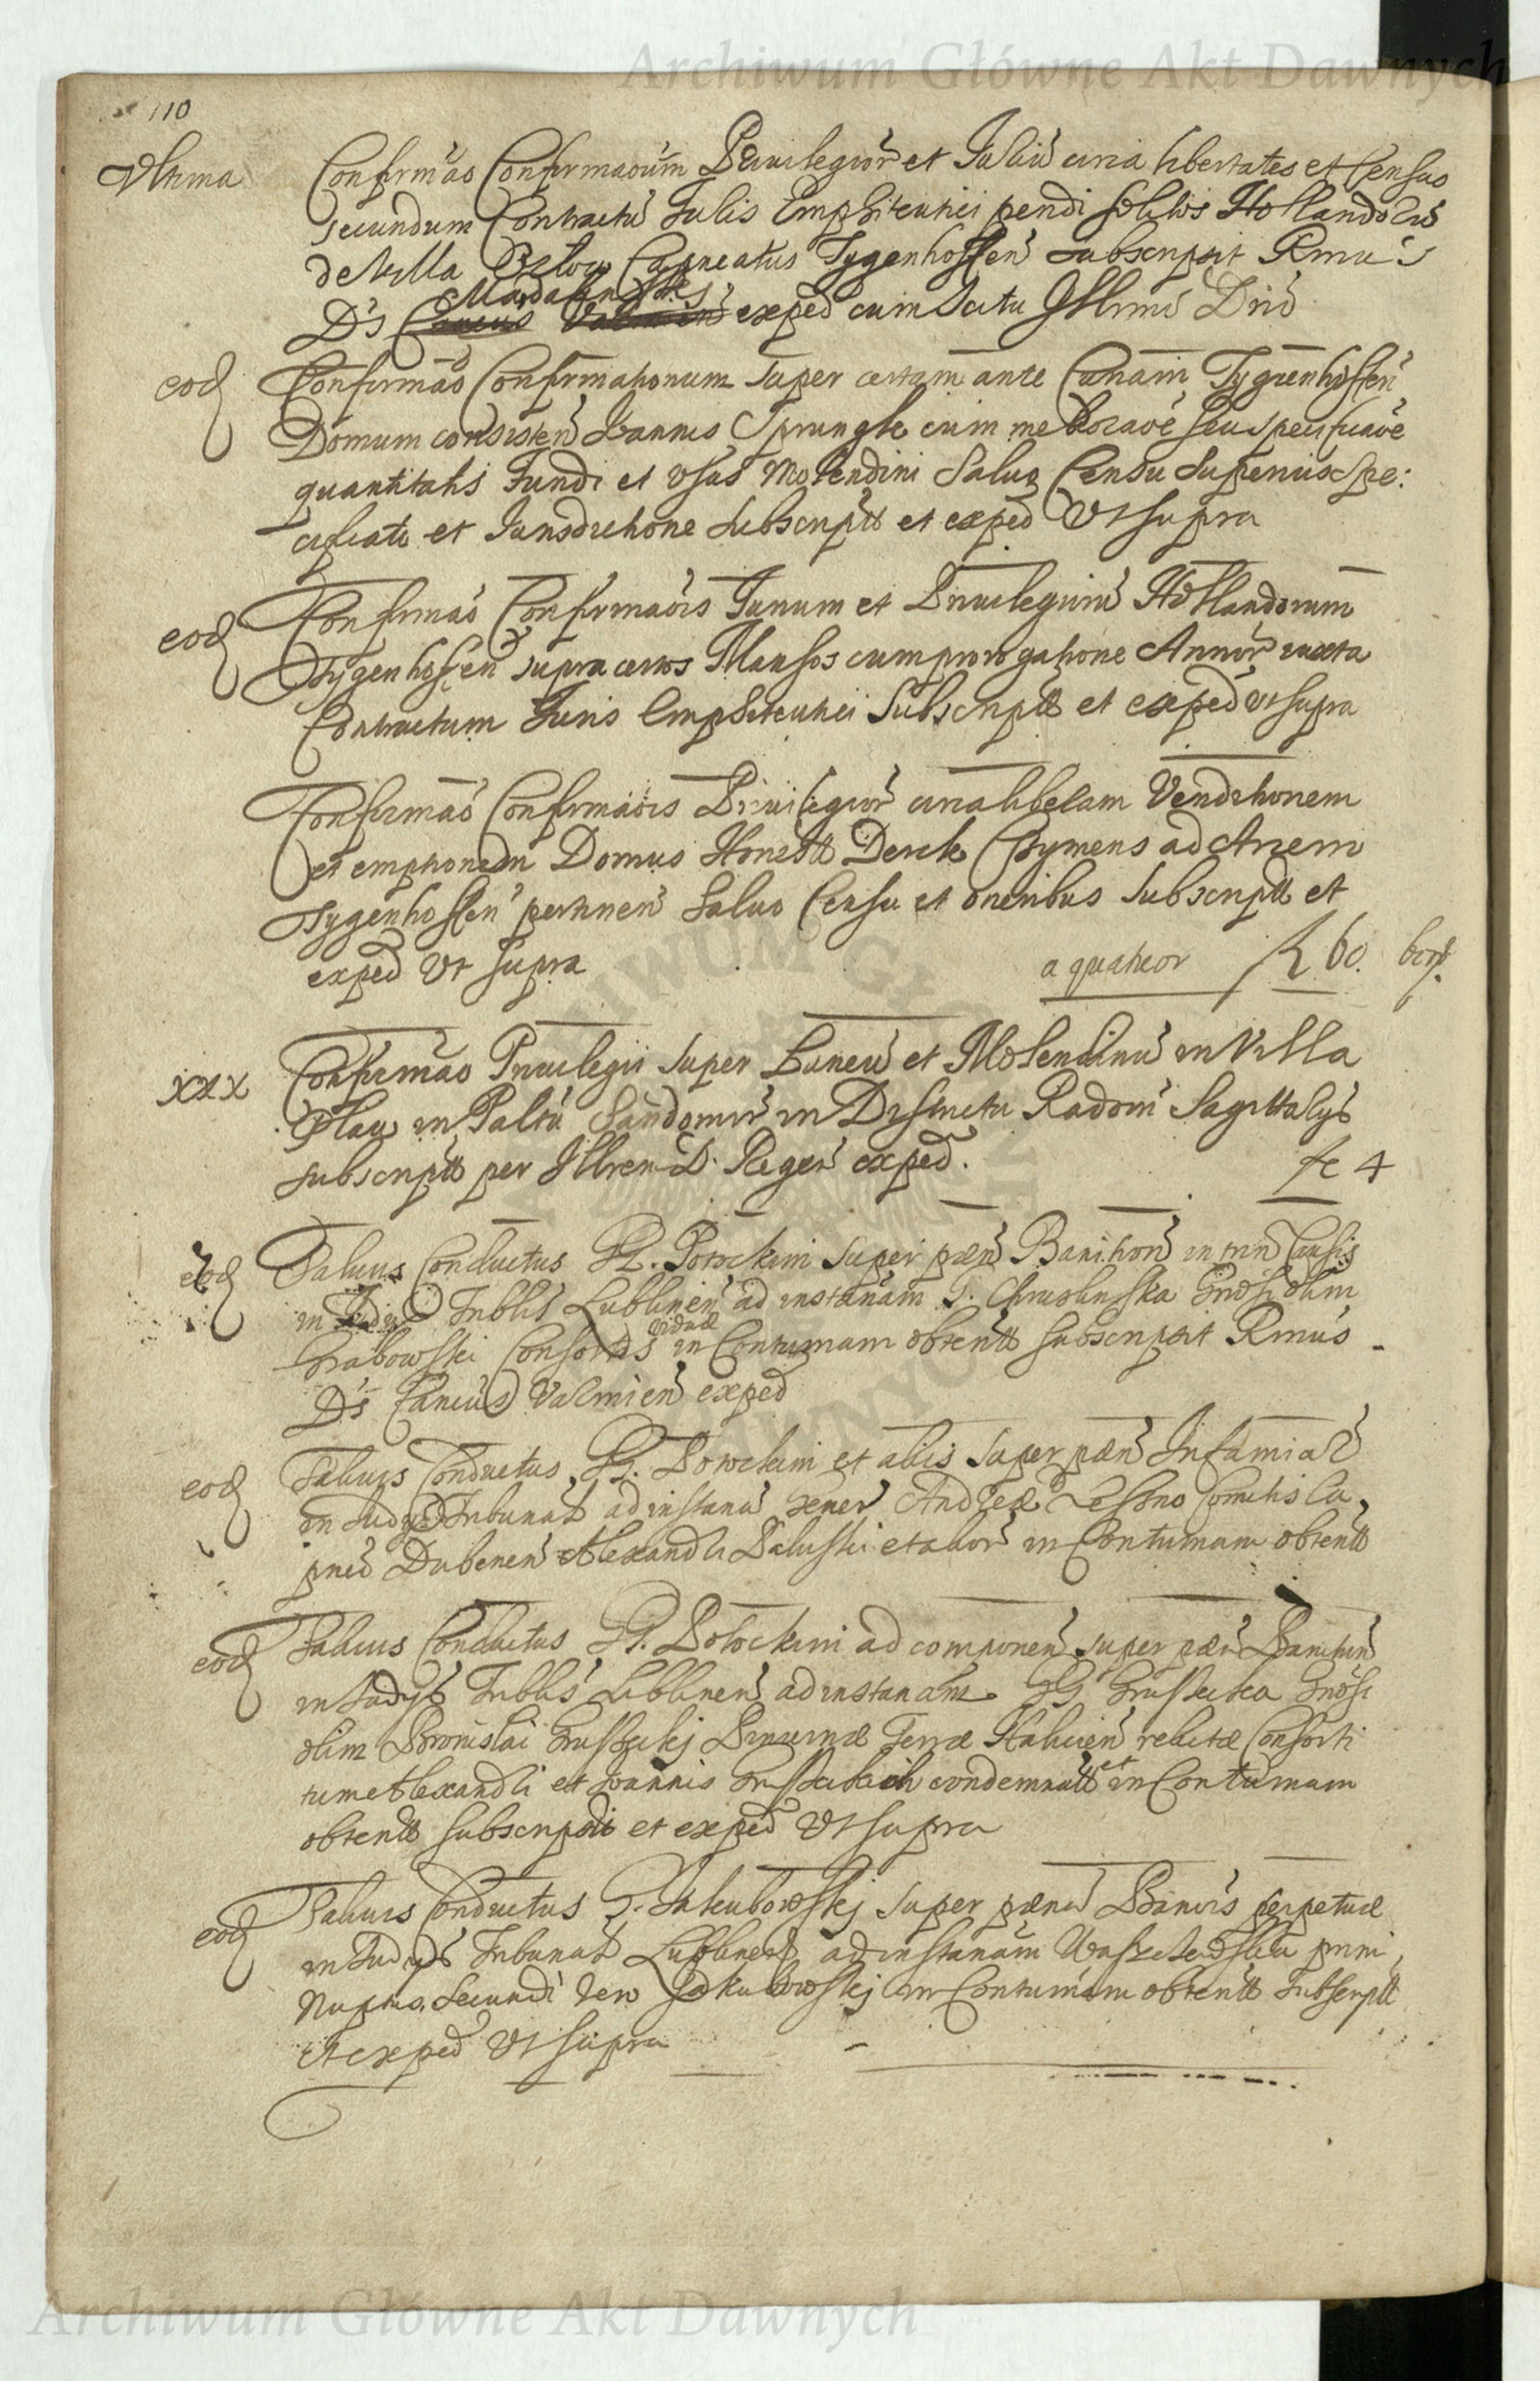 Archiwum Główne Akt Dawnych
110
Vltima Confirmao Confirmaoum Privilegior et Juliu circa libertates et Census
secundum Contractu Iuris Emphiteutici pendi solitos Hollandoru
de Villa Capneatus Tygenhoffen subscripsit Rmus
Ds exped cum Scitu Illrmi Dni
eod Confirmao Confirmationum super certam ante Tygenhoffen
Domum consisten Ioannis Sprungk cum melioraoe seu specificaoe
quantitatis Fundi et vsus Molendini Saluo Censu Superius spe:
cificato et Iurisdictione subscriptt et exped Vt supra
eod Confirmao Confirmaois Iurium et Privilegioru Hollandorum
Tygenhoffen supra certos Mansos cum prorogatione Annor iuxta
Contractum Iuris Emphiteutici Subscriptt et exped vt supra
Confirmao Confirmaois Privilegior circa libelam Venditionem
et emptionem Domus Honestt Derck Tymens ad Arcem
Tygenhoffen pertinen Saluo Censu et oneribus subscriptt et
exped Vt supra a quatuor 60.
xxx Confirmao Priuilegii super Laneu et Molendinu in Villa
in Paltu Sandomir in Districtu Radom Sagittalys
subscriptt per Illrem D. Regen exped. fl 4
eod Saluus Conductus G. Potockim super pæn Banition in trin Causis
in Iudys Tribliū Lublinen ad instanam G. Gnosi olim
Grabowski Consortis viduæ in Contumam obtentt subscripsit Rmus
Ds Cancius Valmien exped
eod Saluus Conductus G. Potockim et aliis super pæn Infamiar
in Iudys Tribunal ad instana Gener Andreæ Lesno Comitis Ca,
pnei Dubenen Alexandri Zaluski et alior in Contumam obtentt
eod Saluus Conductus G. Potockim ad componen super pæn Banition
in Iudys Triblis Lublinen ad instanam GG Grussecka Gnosi
olim Bronislai Grusseckj Pincernæ Terræ Halicien relictæ Consorti
tum Alexandri et Ioannis condemnatt et in Contumam
obtentt subscriptt et exped Vt supra
eod Saluus Conductus G. Jakubowskj super pæna Banois perpetuæ
in Iudys Tribunal Lublinen ad instanam primi
Nuptus, secundi vero Jakubowskj in Contumam obtentt subscriptt
et exped Vt supra
Archiwum Główne Akt Dawnych